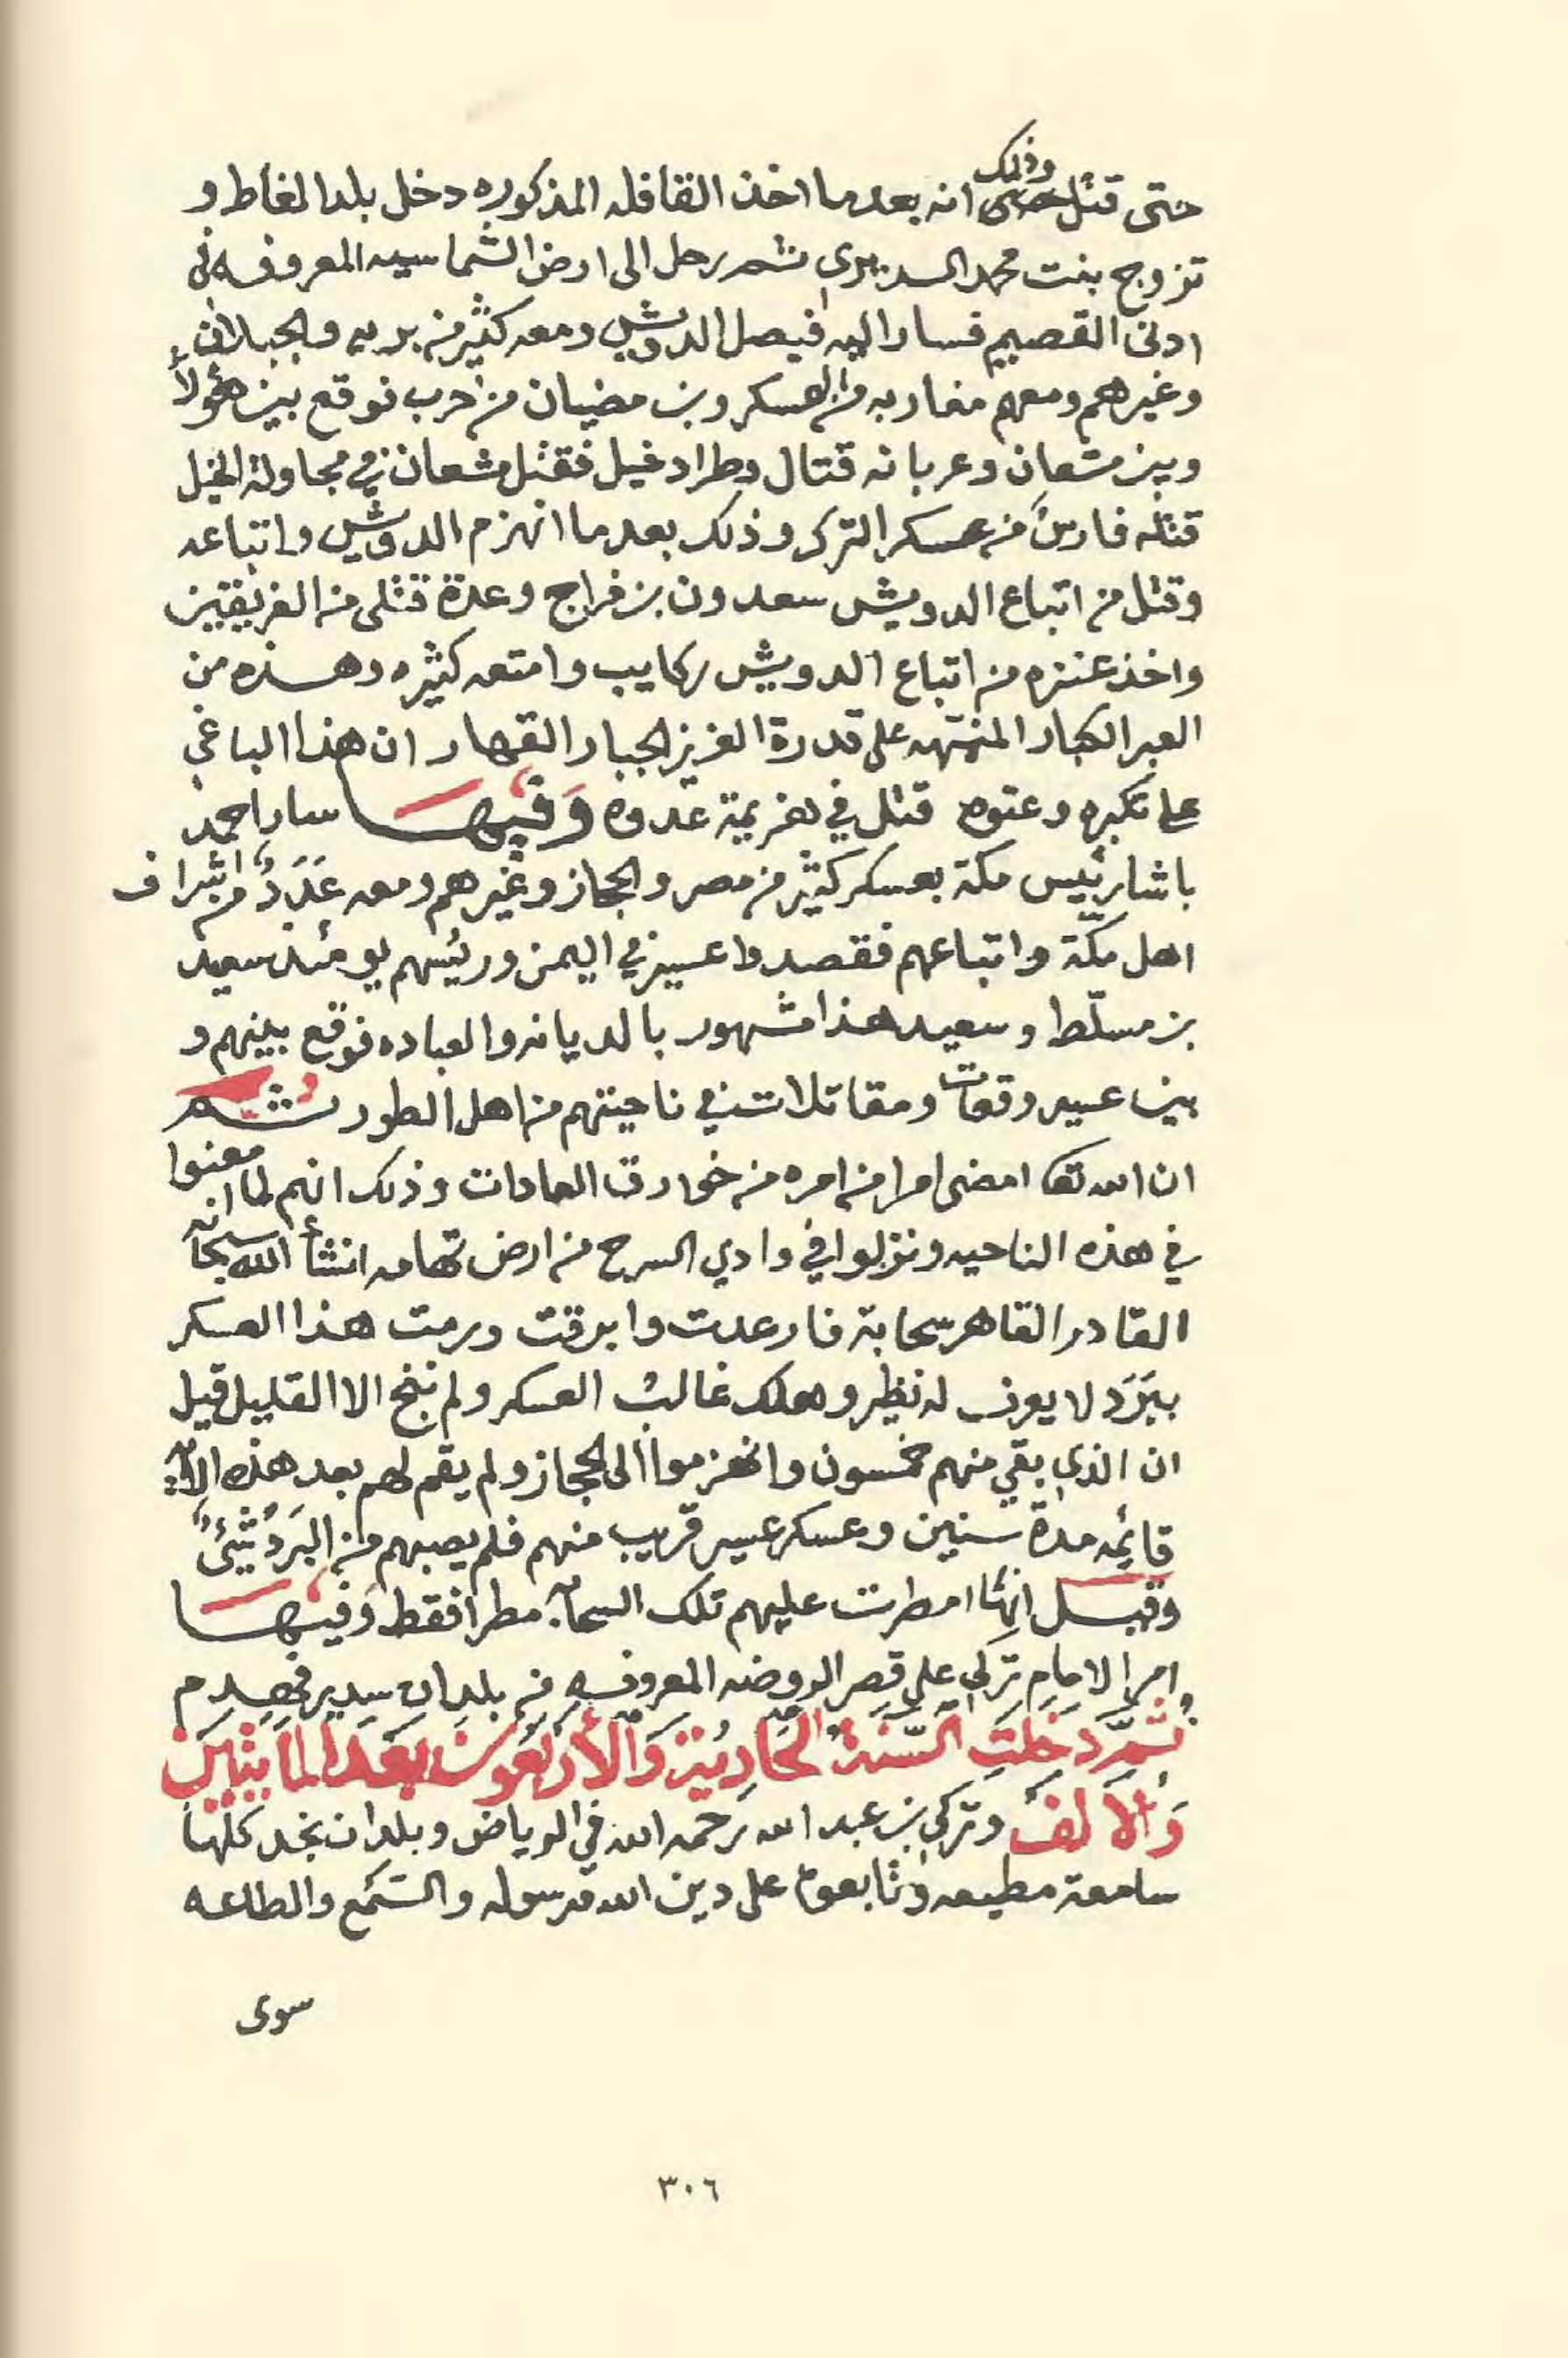 وذلك
حتى قتل انه بعد ما اخذ القافله المذكوره دخل بلد الغاط و
تزوج بنت محمد السديري ثم رحل الى ارض الشماسيه المعروفه في
ادنى القصيم فسار اليه فيصل الدويش ومعه كثير من بريه والجبلان
وغيرهم ومعهم مغاربه من العسكر وبن مضيان من حرب فوقع بين هؤلاء
وبين مشعان وعربانه قتال وطراد خيل فقتل مشعان في مجاولة الخيل
قتله فارس من عسكر الترك وذلك بعد ما انهزم الدويش واتباعه
وقتل من اتباع الدويش سعدون بن فراج وعدة قتلى من الفريقين
واخذ عنزه من اتباع الدويش ركايب وامتعه كثيره وهذه من
العبر الكبار المنبهه على قدرة العزيز الجبار القهار ان هذا الباغي
على تكبره وعتوه قتل في هزيمة عدوه وَفيها سار احمد
باشا رئيس مكة بعسكر كثير من مصر والحجاز وغيرهم ومعه عَدَدٌ من اشراف
اهل مكّة واتباعهم فقصدوا عسير في اليمن ورئيسهم يومئذ سعيد
بن مسلّط وسعيد هذا مشهور بالديانه والعباده فوقع بينهم و
بين عسير وقعات ومقاتلات في ناحيتهم من اهل الطور ثم
ان الله تعا امضى امرا من امره من خوارق العادات وذلك انهم لما امعنوا
في هذه الناحيه ونزلوا في وادي السرح من ارض تهامه انشأ الله سبحانه
القادر القاهر سحابة فارعدت وابرقت ورمت هذا العسكر
ببَرَد لا يعرف له نظير وهلك غالب العسكر ولم ينج الا القليل قيل
ان الذي بقي منهم خمسون وانهزموا الى الحجاز ولم يقم لهم بعد هذه الآية
قائمه مدة سنين وعسكر عسير قريب منهم فلم يصبهم من البَرَد شيئ
وقيل انها امطرت عليهم تلك السحابة مطرا فقط وَفيها
امر الامام تركي على قصر الروضه المعروفه في بلدان سدير فهدم
ثم دخلت السّنة الحادية وَالأربعون بعد المائتين
وَالألف وتركي بن عبد الله رحمه الله في الرياض وبلدان نجد كلها
سامعة مطيعه وتابعوه على دين الله ورسوله والسّمع والطاعه
سوى
٣٠٦